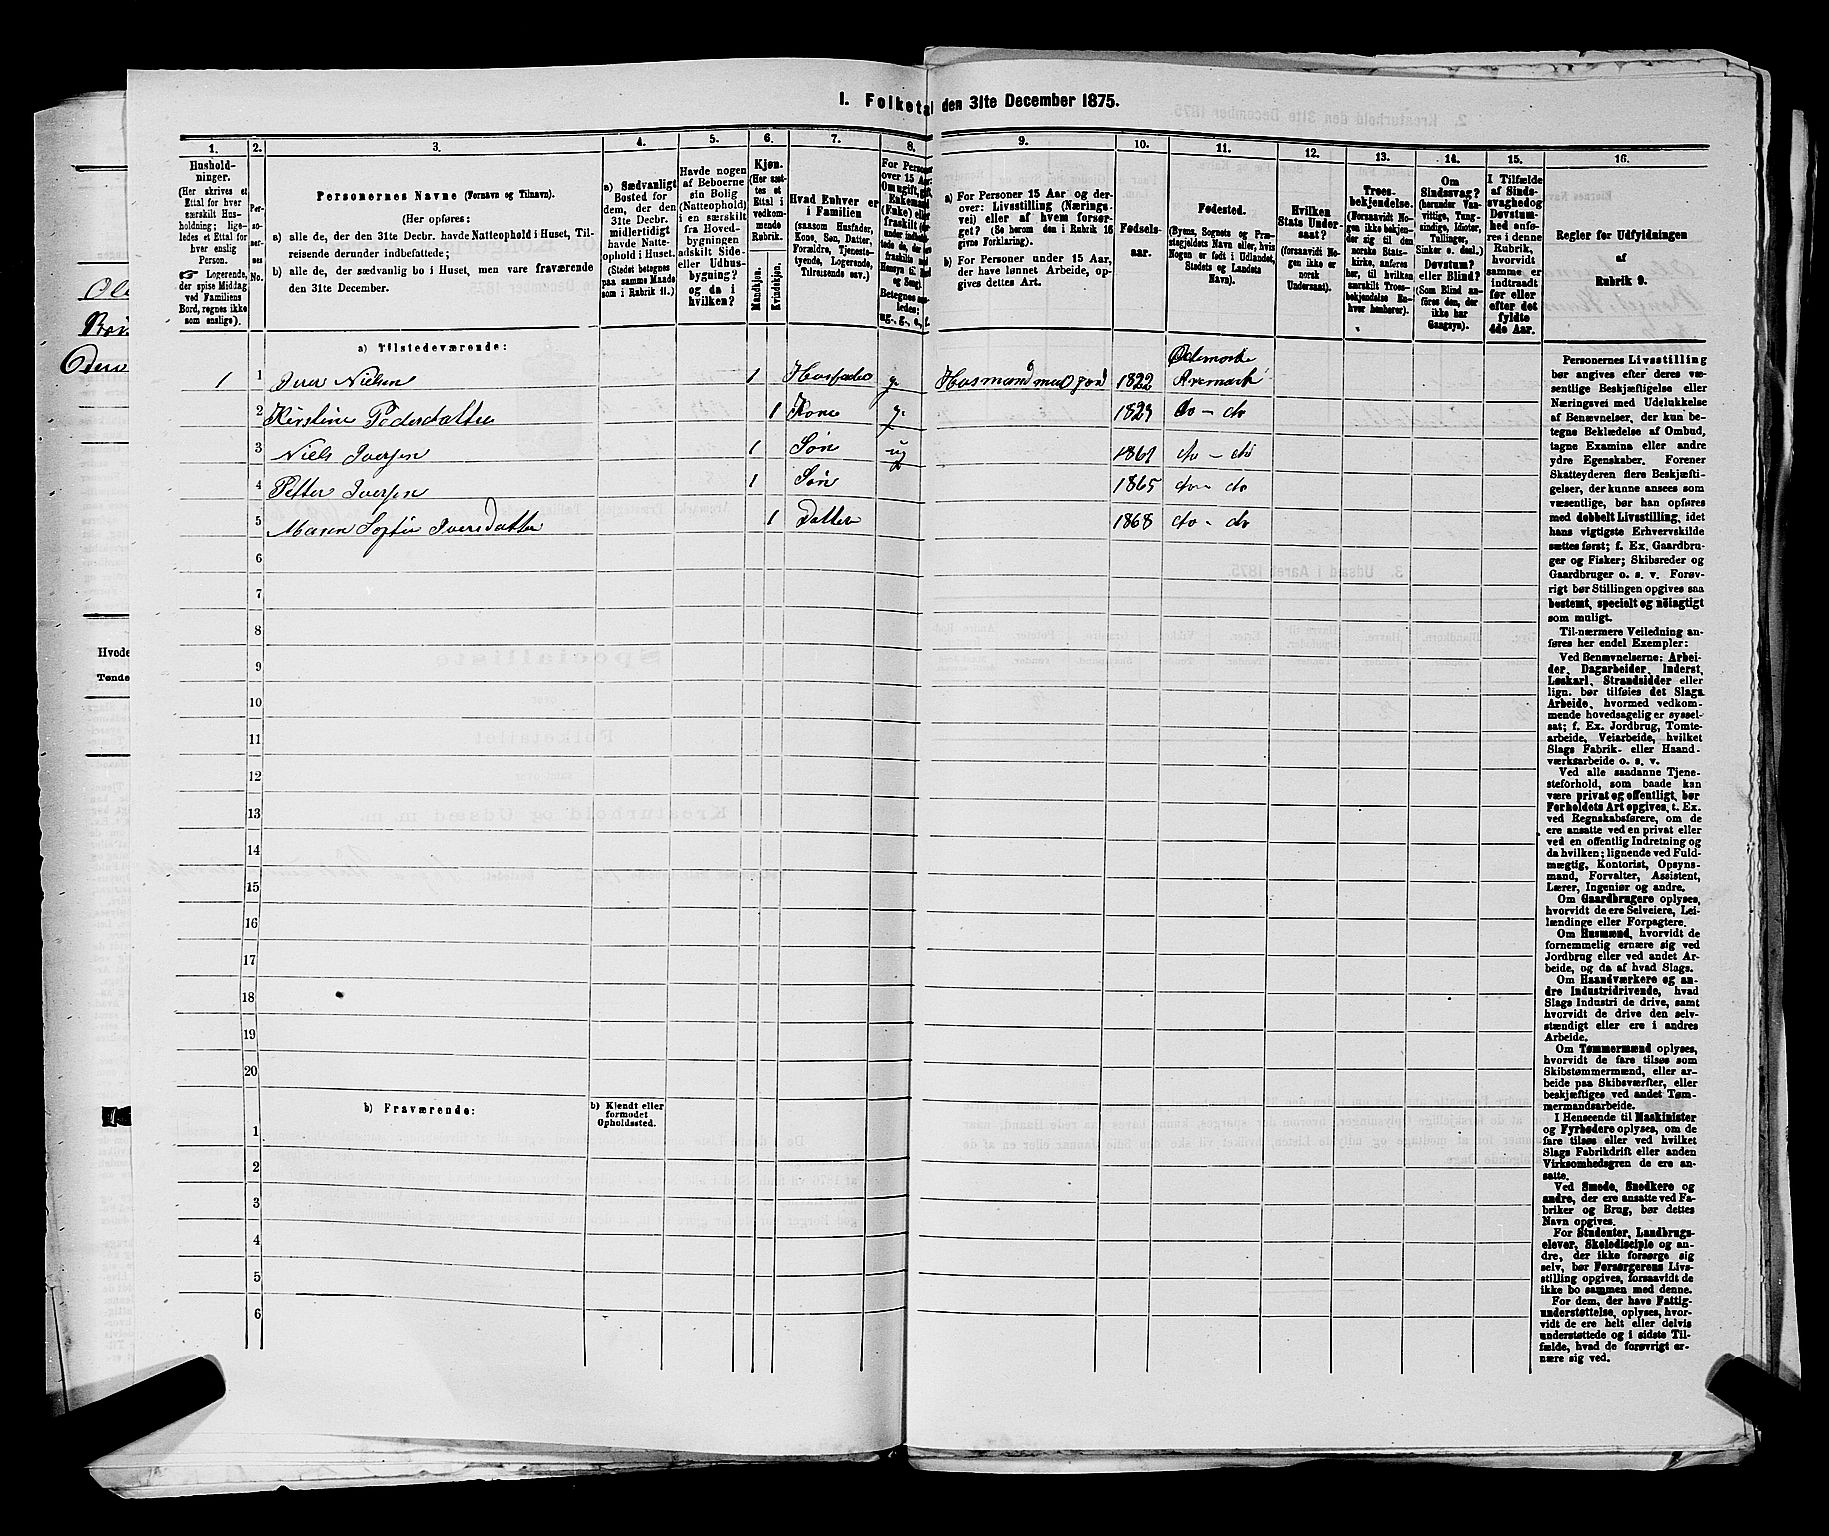 I. Folketal den 31te December 1875.
1.
Hushold-
ninger.
(Her skrives et
Ettal for hver
særskilt Hus-
holdning; lige-
ledes et Ettal for
hver enslig
Person.
☛ Logerende,
der spise Middag
ved Familiens
Bord, regnes ikke
som enslige).
2.
Per-
so-
ner-
nes
No.
3.
Personernes Navne (Fornavn og Tilnavn).
(Her opføres:
a) alle de, der den 31te Decbr. havde Natteophold i Huset, Til-
reisende derunder indbefattede;
b) alle de, der sædvanlig bo i Huset, men vare fraværende
den 31te December.
4.
a) Sædvanligt
Bosted for
dem, der den
31te Decbr.
midlertidigt
havde Natte-
ophold i Huset.
(Stedet betegnes
paa samme Maade
som i Rubrik 11.)
5.
Havde nogen
af Beboerne
sin Bolig
(Natteophold)
i en særskilt
fra Hoved-
bygningen
adskilt Side-
eller Udhus-
bygning?
og da i
hvilken?
6.
Kjøn.
(Her sæt-
tes et
Ettal i
vedkom-
mende
Rubrik.
Mandkjøn.
Kvindekjøn.
7.
Hvad Enhver er
i Familien
(saasom Husfader,
Kone, Søn, Datter,
Forældre, Tjeneste-
tyende, Logerende,
Tilreisende osv.)
8.
For Persone
over 15 Aar:
9.
a) For Personer 15 Aar og der-
over: Livsstilling (Nærings-
vei) eller af hvem forsør-
get? (Se herom den i Rubrik 16
givne Forklaring).
b) For Personer under 15 Aar,
der have lønnet Arbeide, op-
gives dettes Art.
10.
Fødsels-
aar.
11.
Fødested.
(Byens, Sognets og Præ-
stegjeldets Navn eller, hvis
Nogen er født i Udlandet,
Stedets og Landets
Navn).
12.
Hvilken
Stats Under-
saat?
(forsaavidt No-
gen ikke er
norsk
Undersaat).
13.
Troes-
bekjendelse.
(Forsaavidt No-
gen ikke bekjen-
der sig til den
norske Stats-
kirke, anføres
her, til hvilken
særskilt Troes-
bekjendelse Ve-
kommende
hør henhører).
14.
Om
Sindssvag?
(herunder Van-
vittige, Tung-
sindige, Idioter,
Tullinger,
Sinker o. desl.)
Døvstum?
eller Blind?
(Som Blind an-
føres den, der
ikke har
Gangsyn).
15.
I Tilfælde
af Sinds-
svaghed og
Døvstum-
hed anfø-
res i denne
Rubrik,
hvorvidt
samme er
indtraadt
før eller
efter det
fyldte
4de Aar.
16.
Regler for Udfyldningen
af
Rubrik 9.
a) Tilstedeværende:
1 1 Iver Nielsen 1 Husfader g. Husmand med Jord 1822 Aremark
2 Kirstine Pedersdatter 1 Kone g. 1823 do - do
3 Niels Iversen 1 Søn ug 1861 do - do
4 Petter Iversen 1 Søn 1865 do - do
5 Maren Sofie IversDatter 1 Datter 1868 do - do
6
7
8
9
10
11
12
13
14
15
16
17
18
19
20
b) Fraværende:
b) Kjendt eller
formodet
Opholdssted.
1
2
3
4
5
6
Personernes Livsstilling
bør angives efter deres væ-
sentlige Beskjæftigelse eller
Næringsvei med Udelukkelse
af Benævnelser, der kun be-
tegne Beklædelse af Ombud,
tagne Examina eller andre
ydre Egenskaber. Forener
Skatteyderen flere Beskjæfti-
gelser, der kunne ansees som
væsentlige, bør han opføres
med dobbelt Livsstilling, idet
hans vigtigste Erhvervskilde
sættes først; f. Ex. Gaardbru-
ger og Fisker; Skibsreder og
Gaardbruger o. s. v. Forøv-
rigt bør Stillingen opgives saa
bestemt, specielt og nøiagtigt
som muligt.
Til nærmere Veiledning an-
føres her endel Exempler:
Ved Benævnelserne: Arbei-
der, Dagarbeider, Inderst,
Løskarl, Strandsidder eller
lign. bør tilføies det Slags
Arbeide, hvormed vedkom-
mende hovedsagelig er syssel-
sat; f. Ex. Jordbrug, Tomte-
arbeide, Veiarbeide, hvilket
Slags Fabrik- eller Haand-
værksarbeide o. s. v.
Ved alle saadanne Tjene-
steforhold, som baade kan
være privat og offentligt, bør
Forholdets Art opgives, t. Ex.
ved Regnskabsførere, om de
ere ansatte ved en privat eller
ved en offentlig Indretning og
da hvilken; lignende ved Fuld-
mægtig, Kontorist, Opsyns-
mand, Forvalter, Assistent,
Lærer, Ingeniør og andre.
Om Gaardbrugere oplyses,
hvorvidt de ere Selveiere, Lei-
lændinge eller Forpagtere.
Om Husmænd, hvorvidt de
fornemmelig ernære sig ved
Jordbrug eller ved andet Ar-
beide, og da af hvad Slags.
Om Haandværkere og an-
dre Industridrivende, hvad
Slags Industri de drive, samt
hvorvidt de drive den selv-
stændigt eller ere i andres
Arbeide.
Om Tømmermænd oplyses,
hvorvidt de fare tilsøs som
Skibstømmermænd, eller ar-
beide paa Skibsværfter, eller
beskjæftiges ved andet Tøm-
mermandsarbeide.
I Henseende til Maskinister
og Fyrbødere oplyses, om de
fare tilsøs eller ved hvilket
Slags Fabrikdrift eller anden
Virksomhedsgren de ere an-
satte.
Ved Smede, Snedkere og
andre, der ere ansatte ved Fa-
briker og Brug, bør dettes
Navn opgives.
For Studenter, Landbrugs-
elever, Skoledisciple og an-
dre, der ikke forsørge sig
selv, bør Forsørgerens Livs-
stilling opgives, forsaavidt de
ikke bo sammen med denne.
For dem, der have Fattig-
understøttelse, oplyses, hvor-
vidt de ere helt eller delvis
understøttede og i sidste Til-
fælde, hvad de forøvrigt er-
nære sig ved.